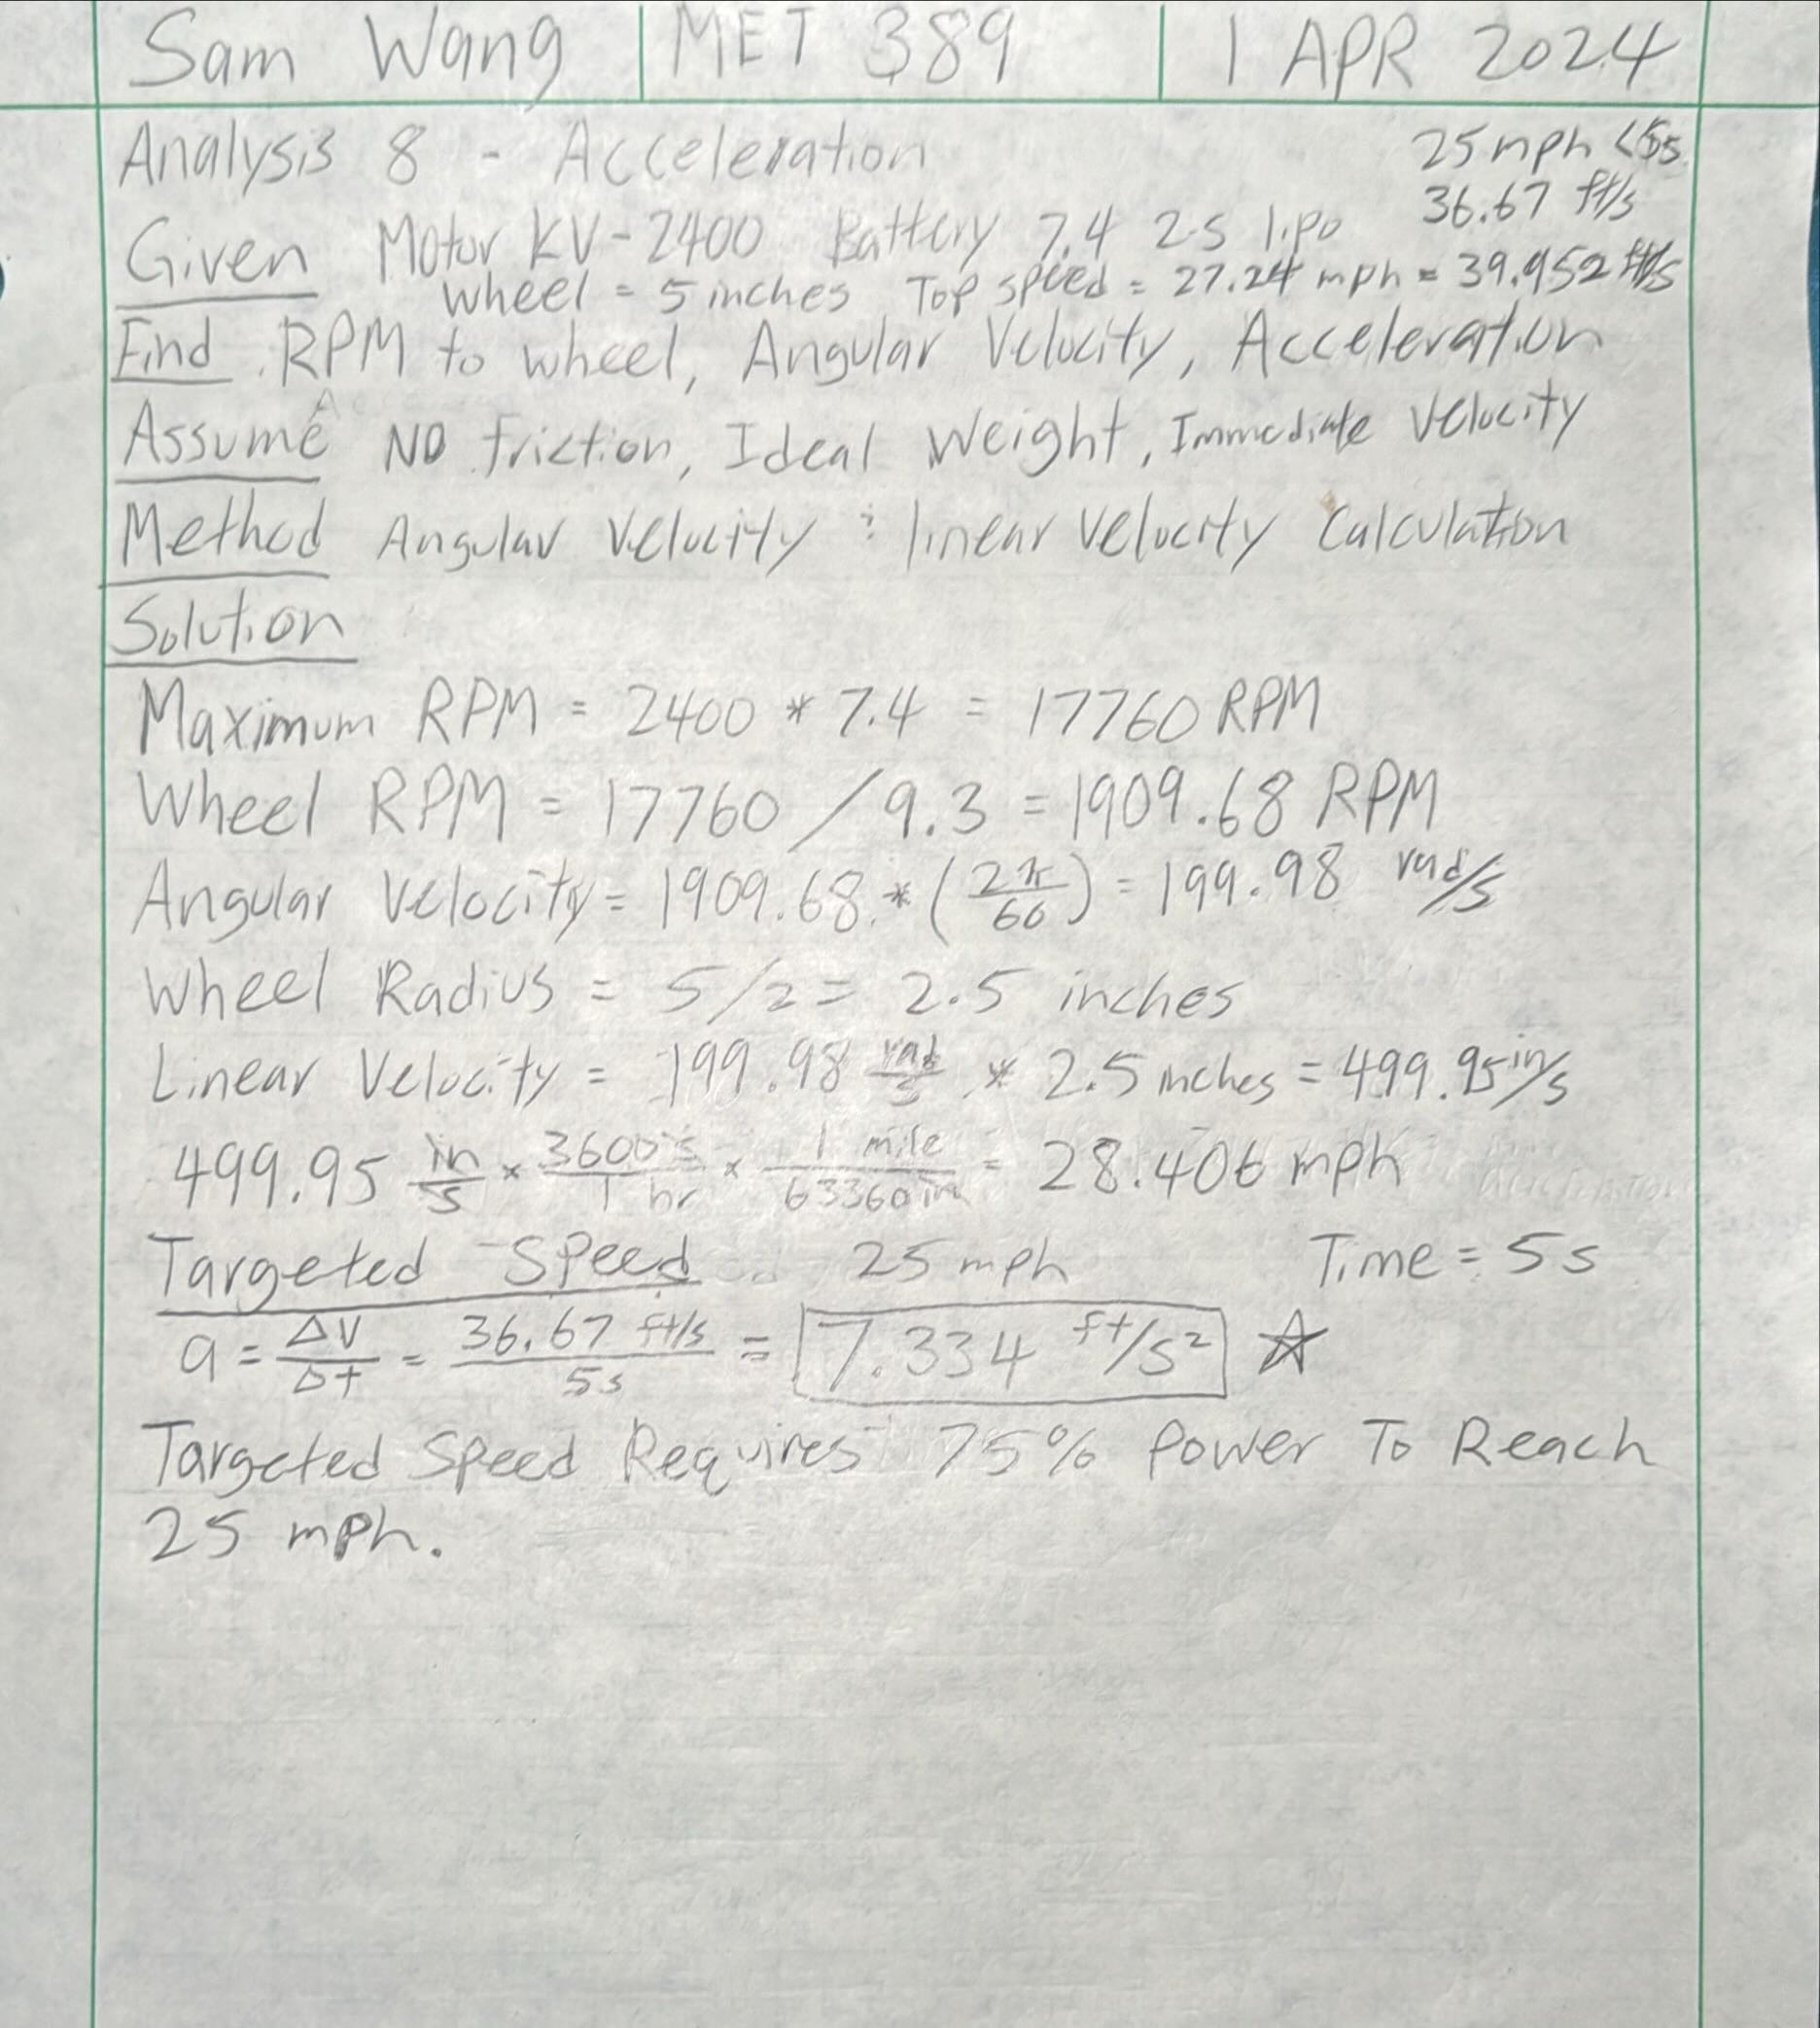 Sam Wang MET 389 1 APR 2024
Analysis 8 - Acceleration 25 mph <5s
36.67 ft/s
Given Motor KV-2400 Battery 7.4 2s lipo
wheel = 5 inches Top speed = 27.24 mph = 39.952 ft/s
Find RPM to wheel, Angular Velocity, Acceleration
Assume No friction, Ideal Weight, Immediate Velocity
Method Angular Velocity : linear velocity Calculation
Solution
Maximum RPM = 2400 * 7.4 = 17760 RPM
Wheel RPM = 17760 / 9.3 = 1909.68 RPM
Angular Velocity = 1909.68 * (2π/60) = 199.98 rad/s
Wheel Radius = 5/2 = 2.5 inches
Linear Velocity = 199.98 rad/s * 2.5 inches = 499.95 in/s
499.95 in/s × 3600 s/1 hr × 1 mile/63360 in = 28.406 mph
Targeted Speed 25 mph Time = 5s
a = ΔV/Δt = 36.67 ft/s/5s = 7.334 ft/s²
Targeted Speed Requires 75% Power To Reach
25 mph.